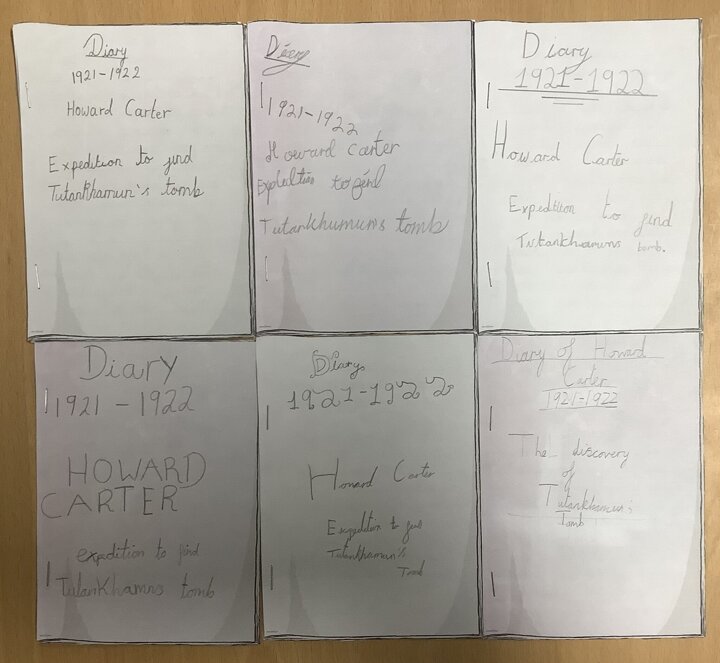 Diary
1921-1922
Howard Carter
Expedition to find
Tutankhamun's tomb
Diary
1921-1922
Howard carter
to find
Tutankhumun's tomb
Diary
1921-1922
Howard Carter
Expedition to find
Tutankhamuns tomb.
Diary
1921-1922
HOWARD
CARTER
expedition to find
Tutankhamns tomb
Diary
1921-1922
Howard Carter
Expedition to find
Tutankhamun's
Tomb
Diary of Howard
Carter
1921-1922
The discovery
of
Tutankhamun's
Tomb